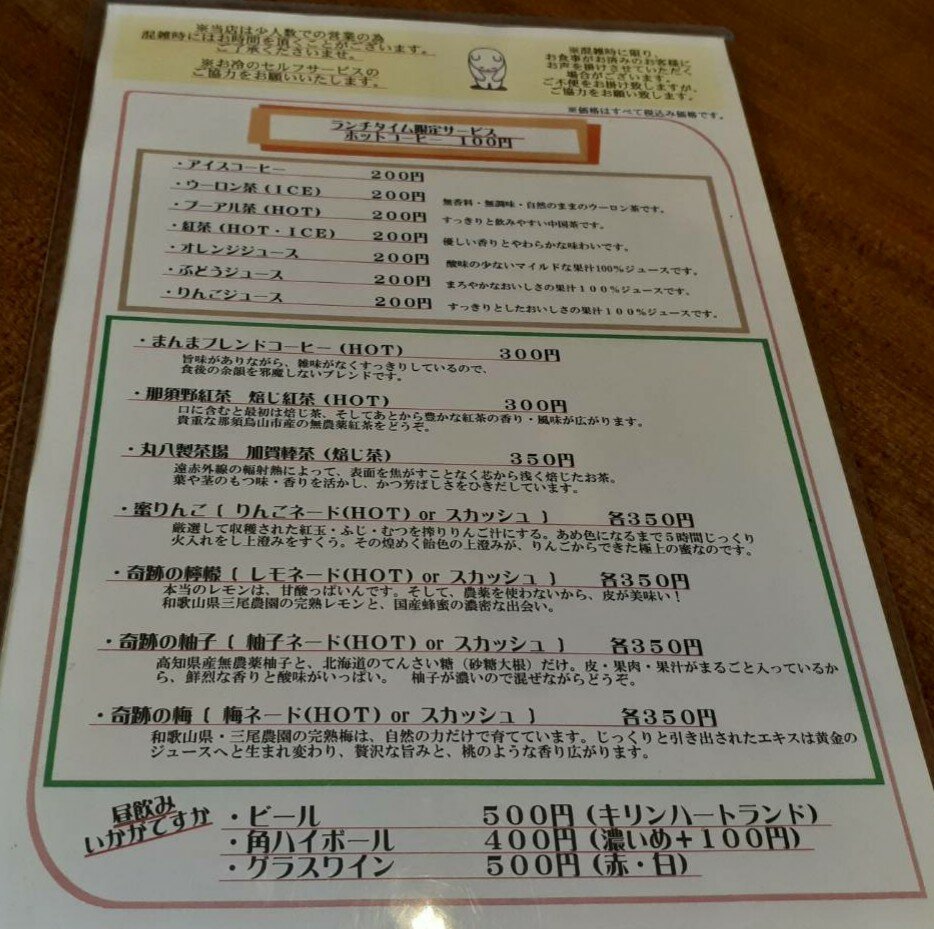 ※当店は少人数での営業の為
混雑時にはお時間を頂くことがございます。
ご了承くださいませ。
※お冷のセルフサービスの
ご協力をお願いいたします。
※混雑時に限り、
お食事がお済みのお客様に
お声を掛けさせていただく
場合がございます。
ご不便をお掛け致しますが、
ご協力をお願い致します。
※価格はすべて税込み価格です。
ランチタイム限定サービス
ホットコーヒー 100円
・アイスコーヒー 200円
・ウーロン茶(ICE) 200円 無香料・無調味・自然のままのウーロン茶です。
・プーアル茶(HOT) 200円 すっきりと飲みやすい中国茶です。
・紅茶(HOT・ICE) 200円 優しい香りとやわらかな味わいです。
・オレンジジュース 200円 酸味の少ないマイルドな果汁100%ジュースです。
・ぶどうジュース 200円 まろやかなおいしさの果汁100%ジュースです。
・りんごジュース 200円 すっきりとしたおいしさの果汁100%ジュースです。
・まんまブレンドコーヒー(HOT) 300円
旨味がありながら、雑味がなくすっきりしているので、
食後の余韻を邪魔しないブレンドです。
・那須野紅茶 焙じ紅茶(HOT) 300円
口に含むと最初は焙じ茶、そしてあとから豊かな紅茶の香り・風味が広がります。
貴重な那須烏山市産の無農薬紅茶をどうぞ。
・丸八製茶場 加賀棒茶(焙じ茶) 350円
遠赤外線の輻射熱によって、表面を焦がすことなく芯から浅く焙じたお茶。
葉や茎のもつ味・香りを活かし、かつ芳ばしさをひきだしています。
・蜜りんご〔りんごネード(HOT) or スカッシュ〕 各350円
厳選して収穫された紅玉・ふじ・むつを搾りりんご汁にする。あめ色になるまで5時間じっくり
火入れをし上澄みをすくう。その煌めく飴色の上澄みが、りんごからできた極上の蜜なのです。
・奇跡の檸檬〔レモネード(HOT) or スカッシュ〕 各350円
本当のレモンは、甘酸っぱいんです。そして、農薬を使わないから、皮が美味い!
和歌山県三尾農園の完熟レモンと、国産蜂蜜の濃密な出会い。
・奇跡の柚子〔柚子ネード(HOT) or スカッシュ〕 各350円
高知県産無農薬柚子と、北海道のてんさい糖(砂糖大根)だけ。皮・果肉・果汁がまるごと入っているか
ら、鮮烈な香りと酸味がいっぱい。 柚子が濃いので混ぜながらどうぞ。
・奇跡の梅〔梅ネード(HOT) or スカッシュ〕 各350円
和歌山県・三尾農園の完熟梅は、自然の力だけで育てています。じっくりと引き出されたエキスは黄金の
ジュースへと生まれ変わり、贅沢な旨みと、桃のような香り広がります。
昼飲み
いかがですか
・ビール 500円(キリンハートランド)
・角ハイボール 400円(濃いめ+100円)
・グラスワイン 500円(赤・白)